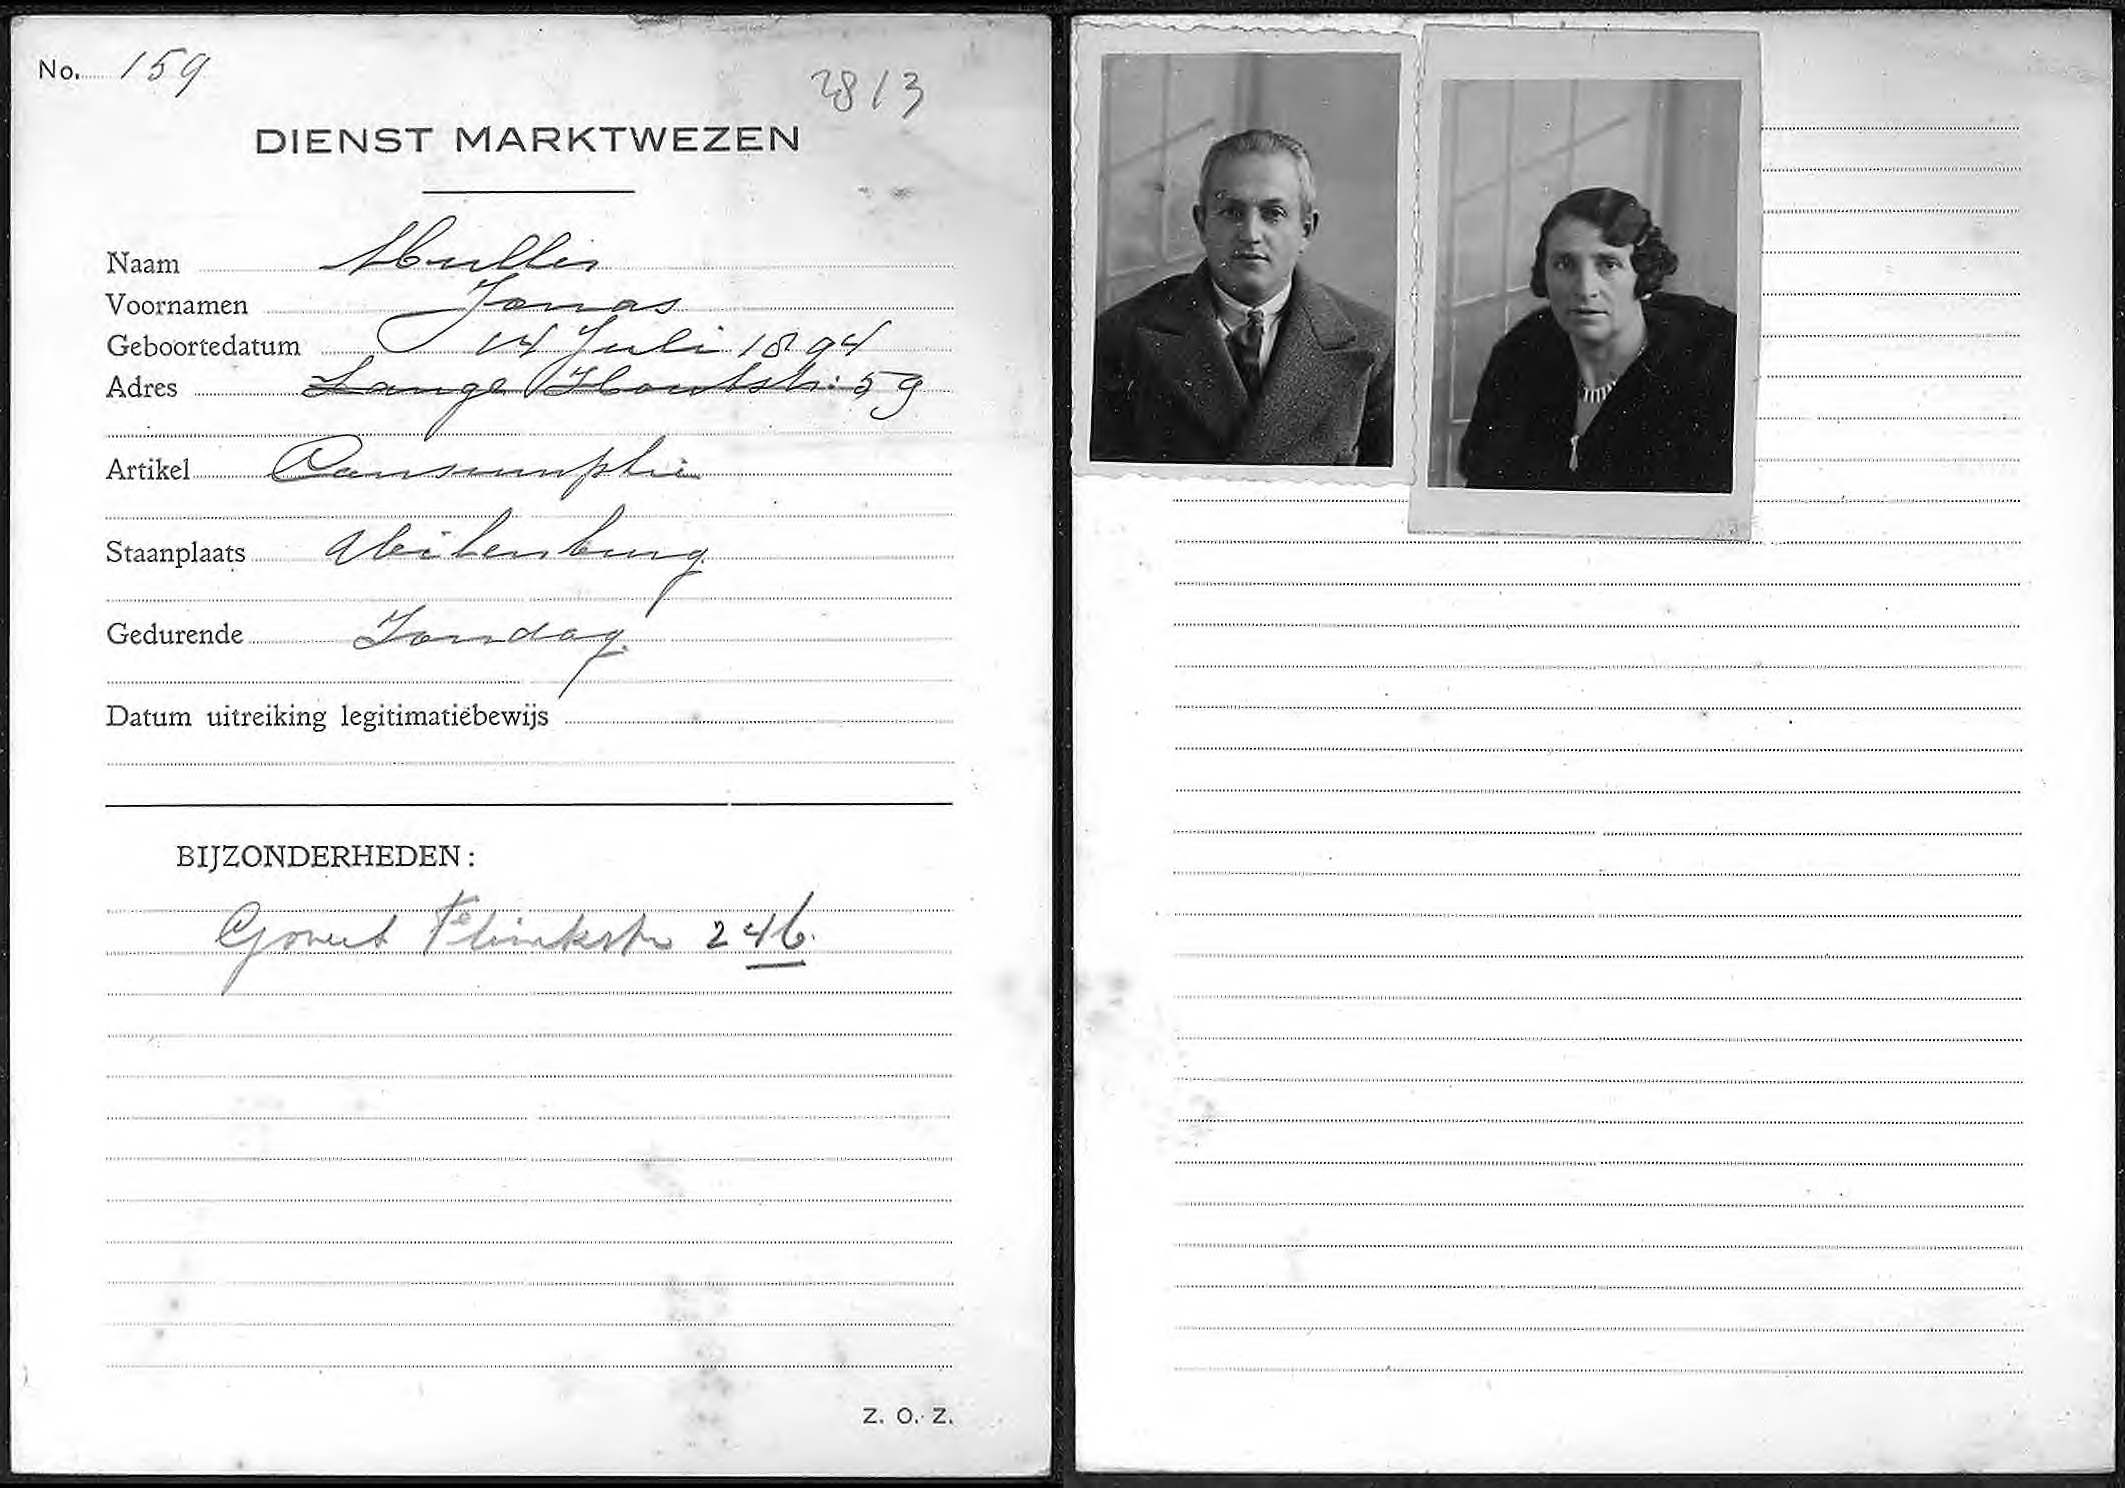 No. 159
2813
DIENST MARKTWEZEN
Naam Muller
Voornamen Jonas
Geboortedatum 14 Juli 1894
Adres Lange Houtstr. 59
Artikel Consumptie
Staanplaats Uilenburg.
Gedurende Zondag.
Datum uitreiking legitimatiebewijs
BIJZONDERHEDEN:
Govert Flinkstr 246.
Z. O. Z.